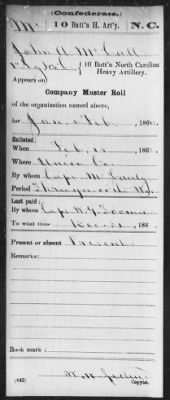 (Confederate.)
Mc 10 Batt'n H. Art'y. N.C.
John A. McCall
10 Batt'n North Carolina
Heavy Artillery.
Appears on
Company Muster Roll
of the organization named above,
for Jan & Feb, 186
Enlisted:
When Feb. 186
Where Union Co.
By whom Capt.
Period
Last paid:
By whom Capt.
To what time Dec. 31, 186
Present or absent Present
Remarks:
Book mark:
(642) Copyist.